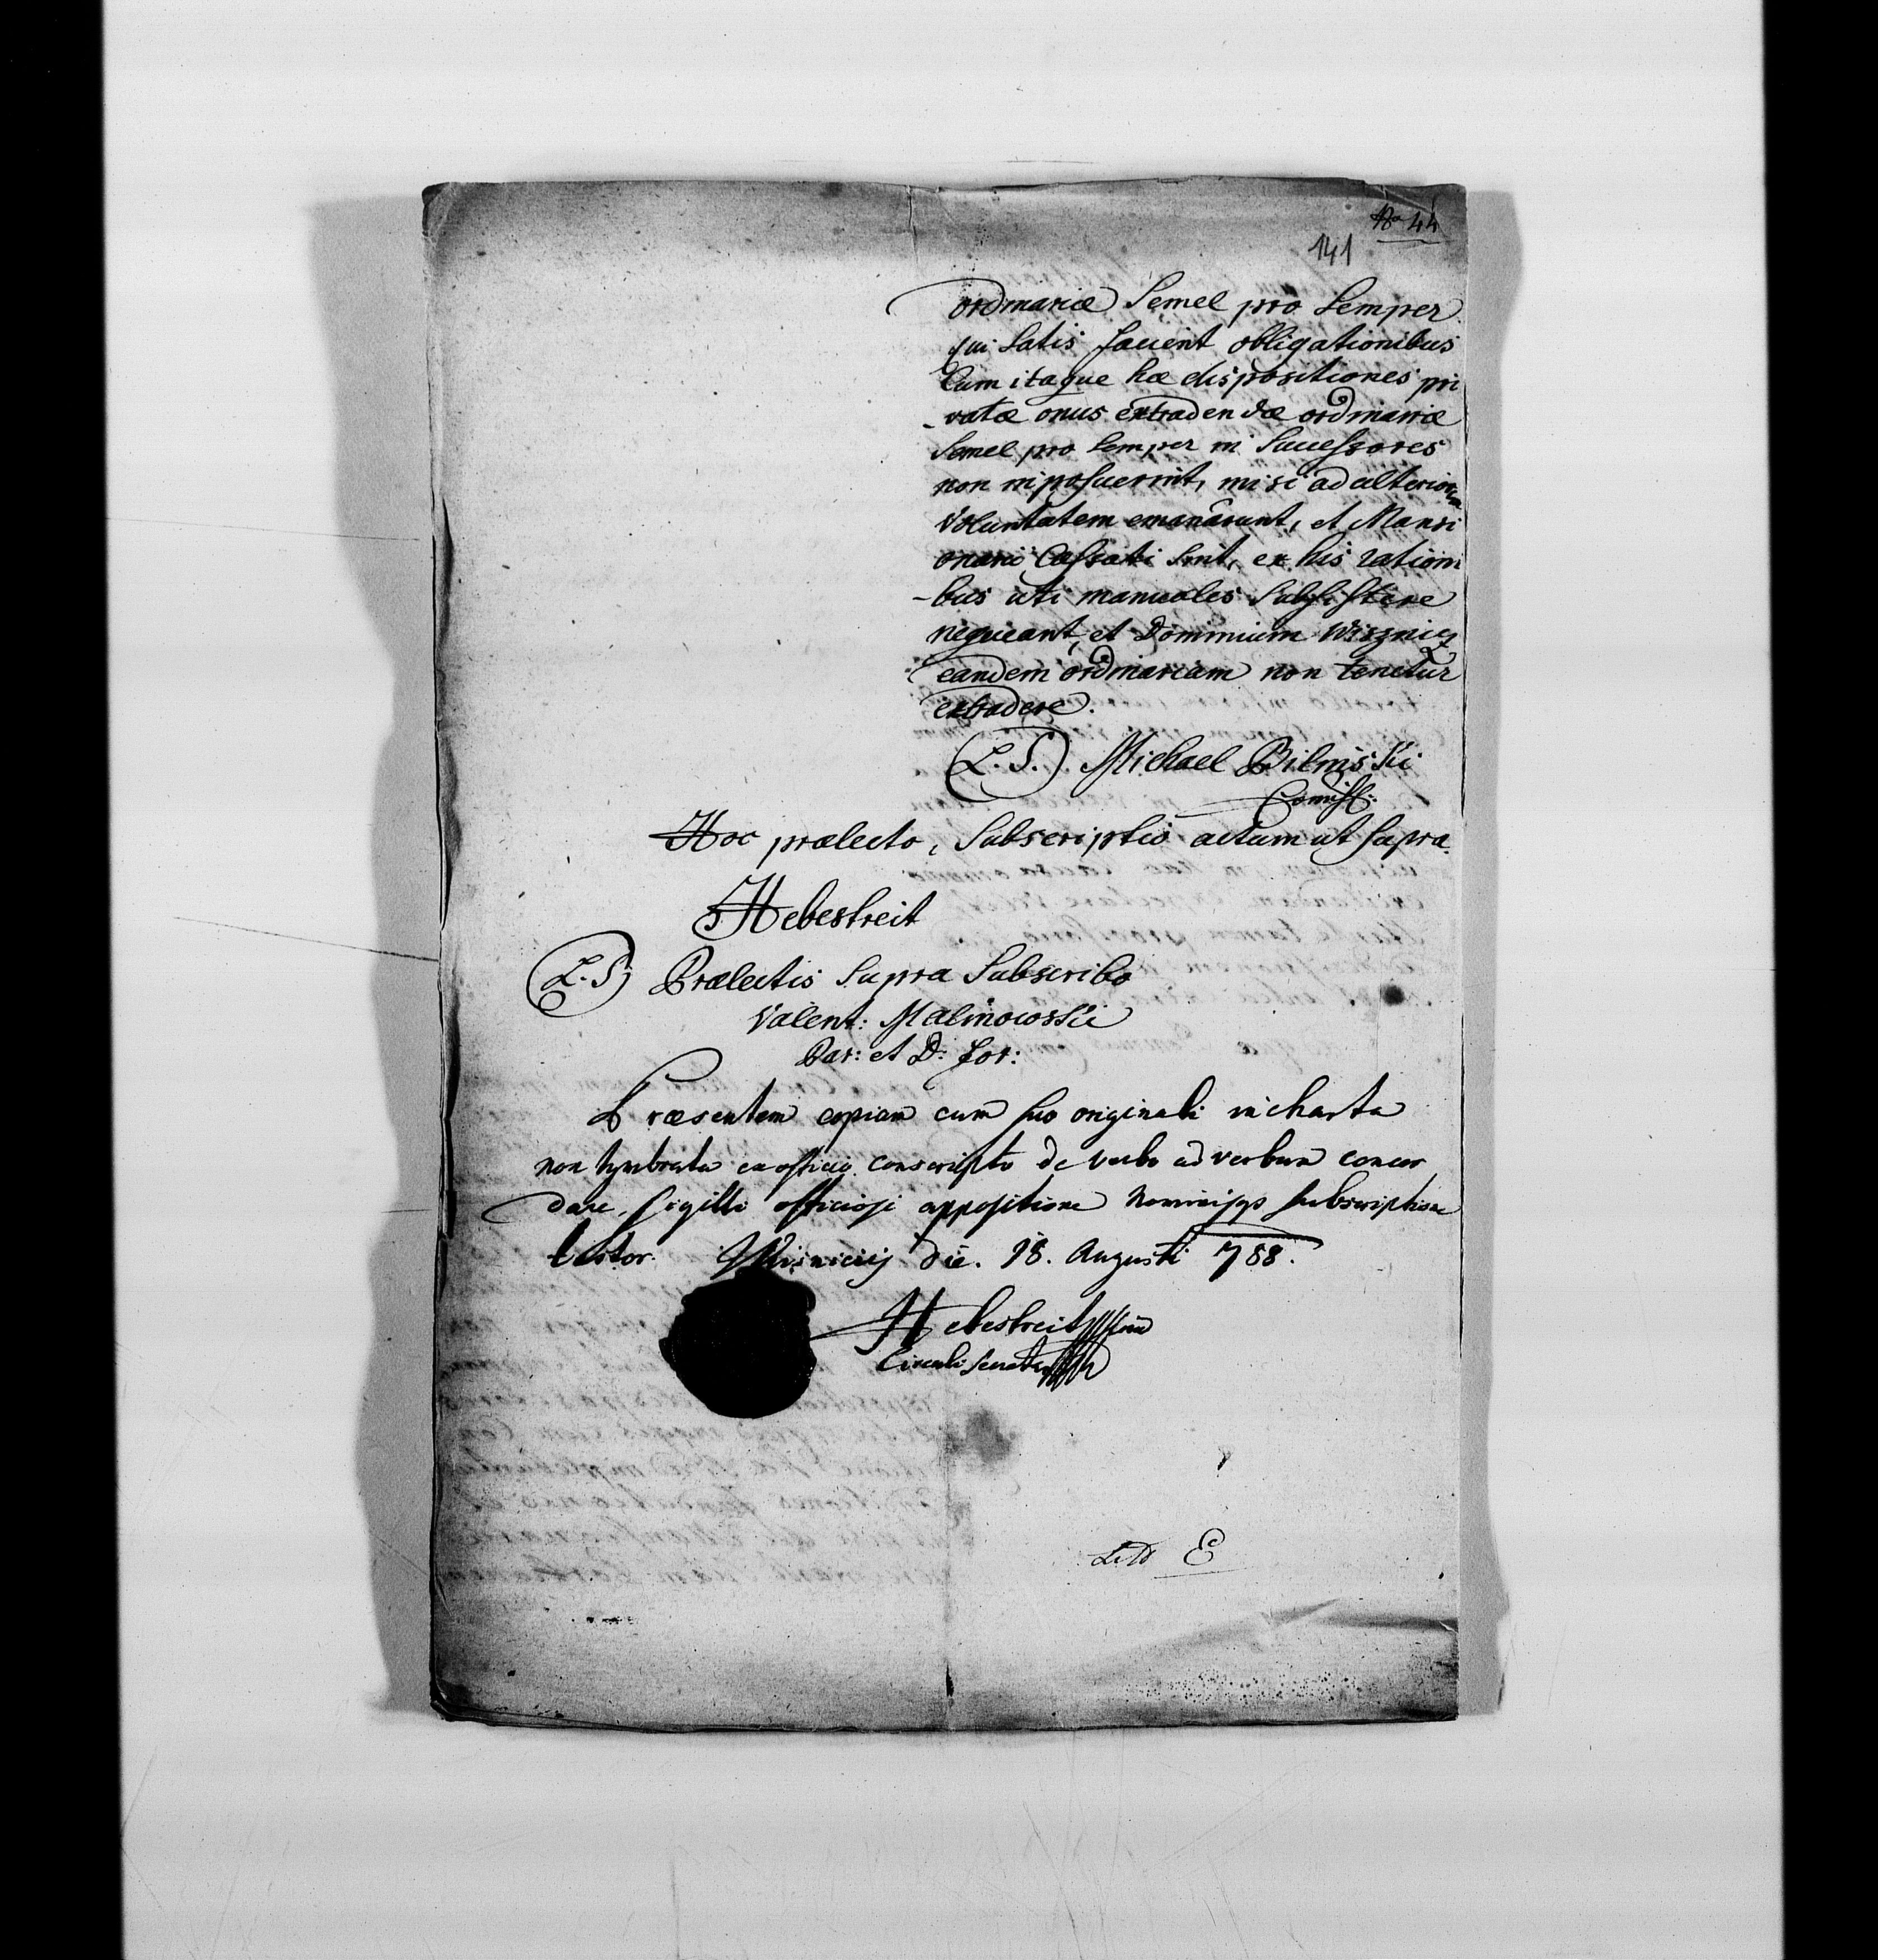 No 44
141
ordinariæ Semel pro Semper
qui Satis facient obligationibus
Cum itaque hæ dispositiones pri
-vatæ onus extradendæ ordinariæ
Semel pro Semper in Successores
non inposuerint, nisi ad ulteriorem
Voluntatem emanârunt, et Mansi
onarii Cassati Sint, ex his rationi
-bus uti manuales Subsistere
nequeant, et Dominium Wisznicz
eandem ordinariam non tenetur
extradere.
(L. S.) Michael Bilinski
Comiss:
Hoc prælecto, Subscriptio actum ut Supra.
Hebestreit
(L. S) Prælectis Supra Subscribo
Valent: Malinowski
Par: et D: For:
Præsentem copiam cum suo originali in charta
non tymbrata ex officio conscripto de verbo ad verbum concor
dare, Sigilli officiosi appositione Nominisqs subscriptione
testor. Wisnicij die. 18. Augusti 788.
Hebestreit
Circuli
Litt E